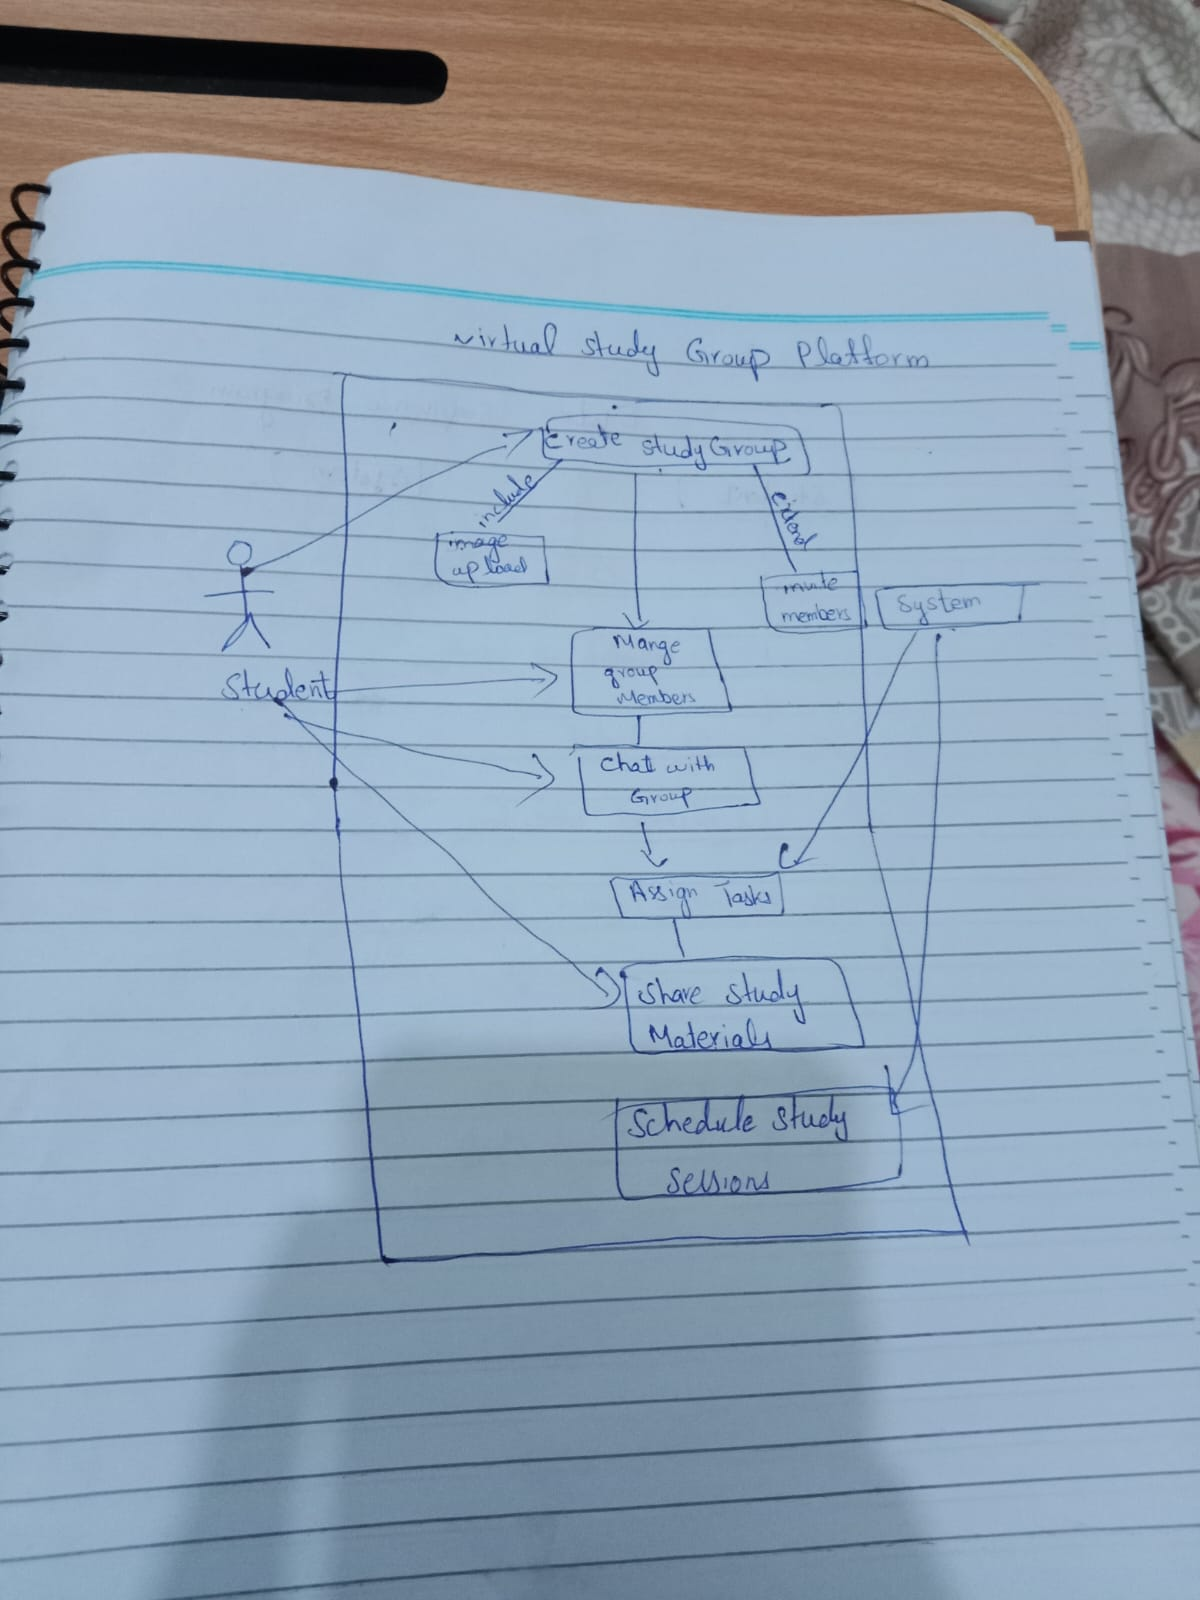 Virtual Study Group Platform
Create Study Group
include
extend
image
upload
invite
members
System
Mange
group
Members
Student
Chat with
Group
Assign Tasks
Share Study
Materials
Schedule Study
Sessions